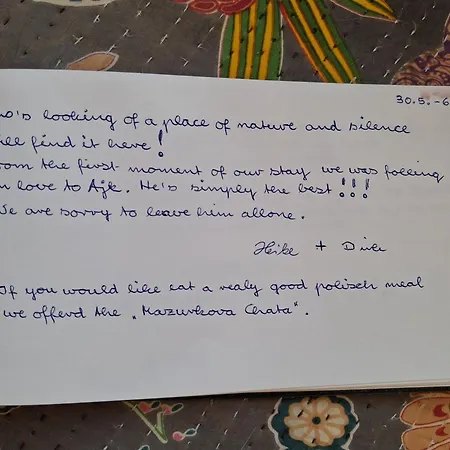 30.5.-6
o's looking of a place of nature and silence
ill find it here!
rom the first moment of our stay we was falling
n love to Ajk. He's simply the best!!!
We are sorry to leave him allone.
Heike + Dirk
If you would like eat a realy good polisch meal
we offerd the "Mazurkova Chata".